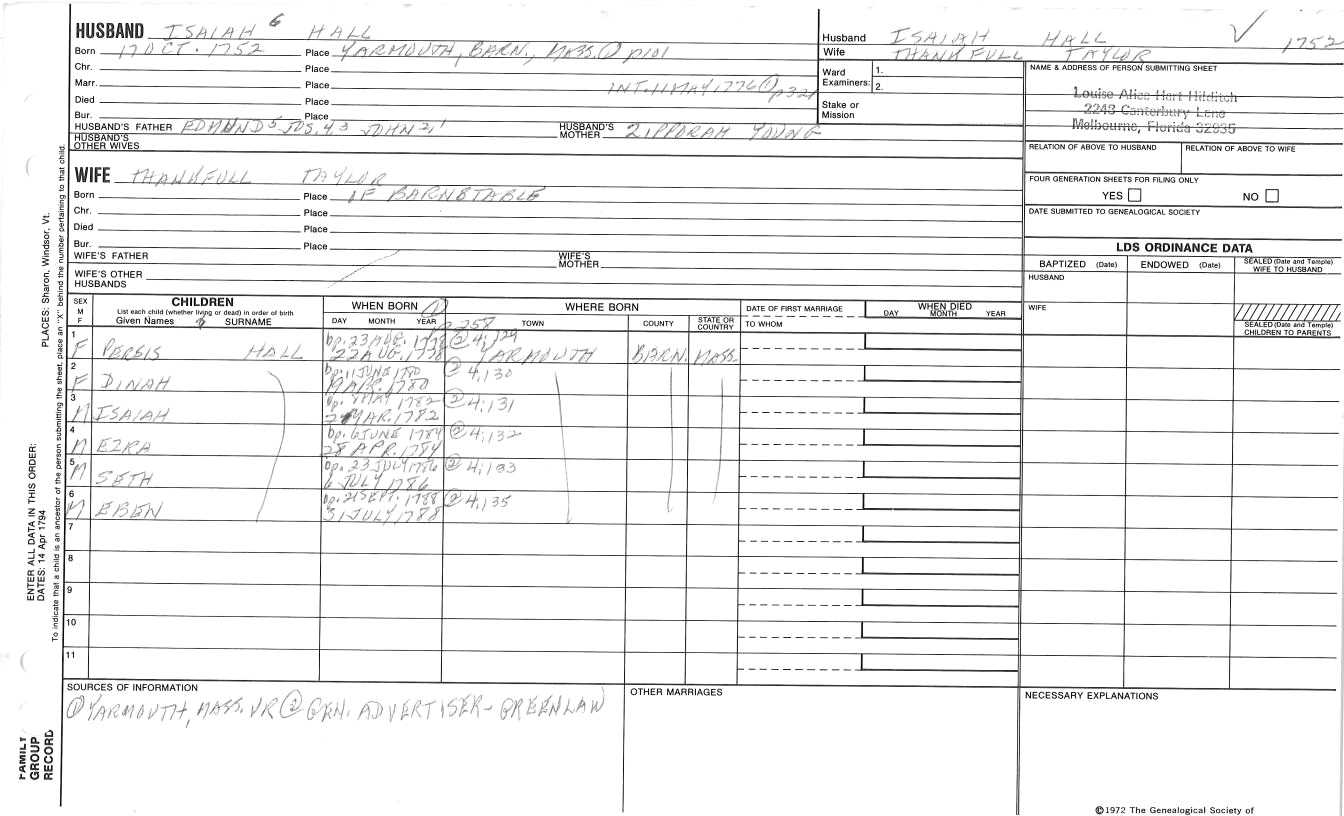 HUSBAND ISAIAH 6 HALL
Born 17 OCT. 1752 Place YARMOUTH, BARN., MASS. ① p101
Chr. Place
Marr. Place INT. 11 MAY 1776 ① p321
Died Place
Bur. Place
HUSBAND'S FATHER EDMUND 5 JOS. 4 3 JOHN 2, 1 HUSBAND'S MOTHER ZIPPORAH YOUNG
HUSBAND'S OTHER WIVES
WIFE THANKFULL TAYLOR
Born Place OF BARNSTABLE
Chr. Place
Died Place
Bur. Place
WIFE'S FATHER WIFE'S MOTHER
WIFE'S OTHER HUSBANDS
Husband ISAIAH HALL ✓ 1752
Wife THANKFULL TAYLOR
Ward Examiners: 1.
2.
Stake or Mission
NAME & ADDRESS OF PERSON SUBMITTING SHEET
Louise Alice Hart Hilditch
2243 Canterbury Lane
Melbourne, Florida 32935
RELATION OF ABOVE TO HUSBAND RELATION OF ABOVE TO WIFE
FOUR GENERATION SHEETS FOR FILING ONLY
YES NO
DATE SUBMITTED TO GENEALOGICAL SOCIETY
LDS ORDINANCE DATA
BAPTIZED (Date) ENDOWED (Date) SEALED (Date and Temple) WIFE TO HUSBAND
HUSBAND
WIFE
SEALED (Date and Temple) CHILDREN TO PARENTS
SEX M F
CHILDREN
List each child (whether living or dead) in order of birth
Given Names SURNAME
WHEN BORN ①
DAY MONTH YEAR p258
WHERE BORN
TOWN COUNTY STATE OR COUNTRY
DATE OF FIRST MARRIAGE
TO WHOM
WHEN DIED
DAY MONTH YEAR
1 bp. 23 AUG. 1778 ② 4;129
F PERSIS HALL 22 AUG. 1778 YARMOUTH BARN. MASS.
2 bp. 11 JUNE 1780 ② 4;130
F DINAH 19 APR. 1780
3 bp. MAY 1782 ② 4;131
M ISAIAH MAR. 1782
4 bp. 6 JUNE 1784 ② 4;132
M EZRA 28 APR. 1784
5 bp. 23 JULY 1786 ② 4;133
M SETH 6 JULY 1786
6 bp. 21 SEPT. 1788 ② 4;135
M EBEN 31 JULY 1788
7
8
9
10
11
SOURCES OF INFORMATION
① YARMOUTH, MASS. VR ② GEN. ADVERTISER - GREENLAW
OTHER MARRIAGES
NECESSARY EXPLANATIONS
©1972 The Genealogical Society of
PLACES: Sharon, Windsor, Vt.
ENTER ALL DATA IN THIS ORDER:
DATES: 14 Apr 1794
To indicate that a child is an ancestor of the person submitting the sheet, place an "X" behind the number pertaining to that child.
FAMILY GROUP RECORD